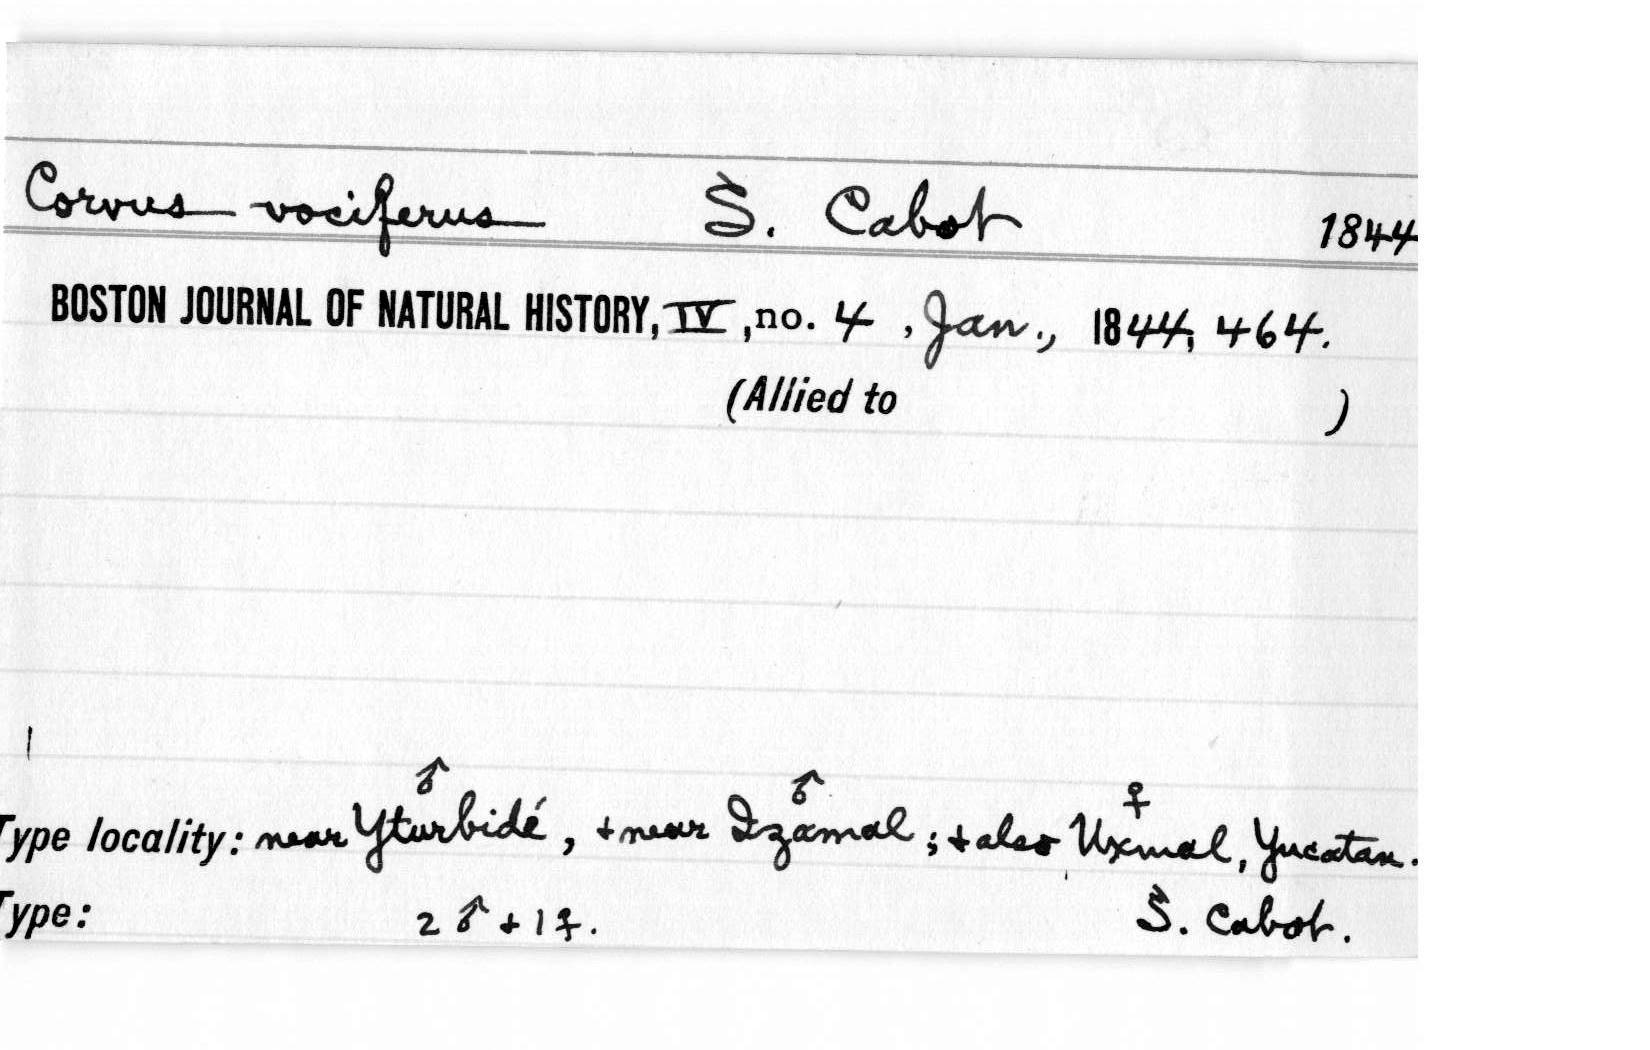 Corvus vociferus S. Cabot 1844
BOSTON JOURNAL OF NATURAL HISTORY, IV, no. 4, Jan., 1844, 464.
(Allied to )
♂ ♂ ♀
Type locality: near Yturbidé, + near Izamal; + also Uxmal, Yucatan.
Type: 2 ♂ + 1 ♀. S. Cabot.